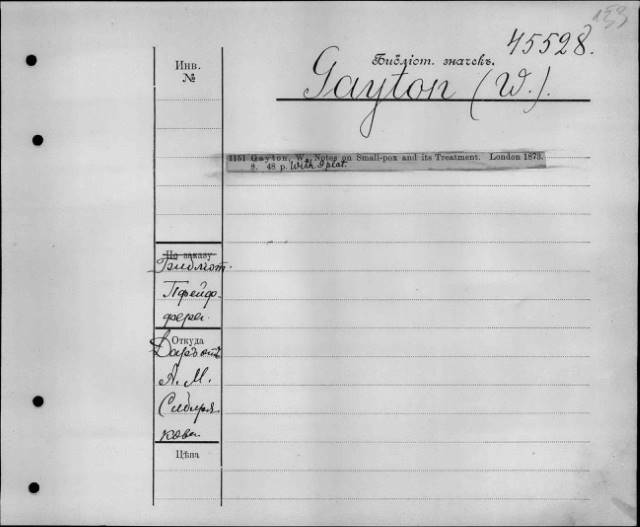 153
45528.
Инв.
№
Библіот. значекъ.
Gayton (W.).
1151 Gayton, W., Notes on Small-pox and its Treatment. London 1873.
8. 48 p. With 1 plat.
По заказу
Библіот.
Пфейф-
фера.
Откуда
Даръ отъ
А. М.
Сибиря
кова.
Цѣна